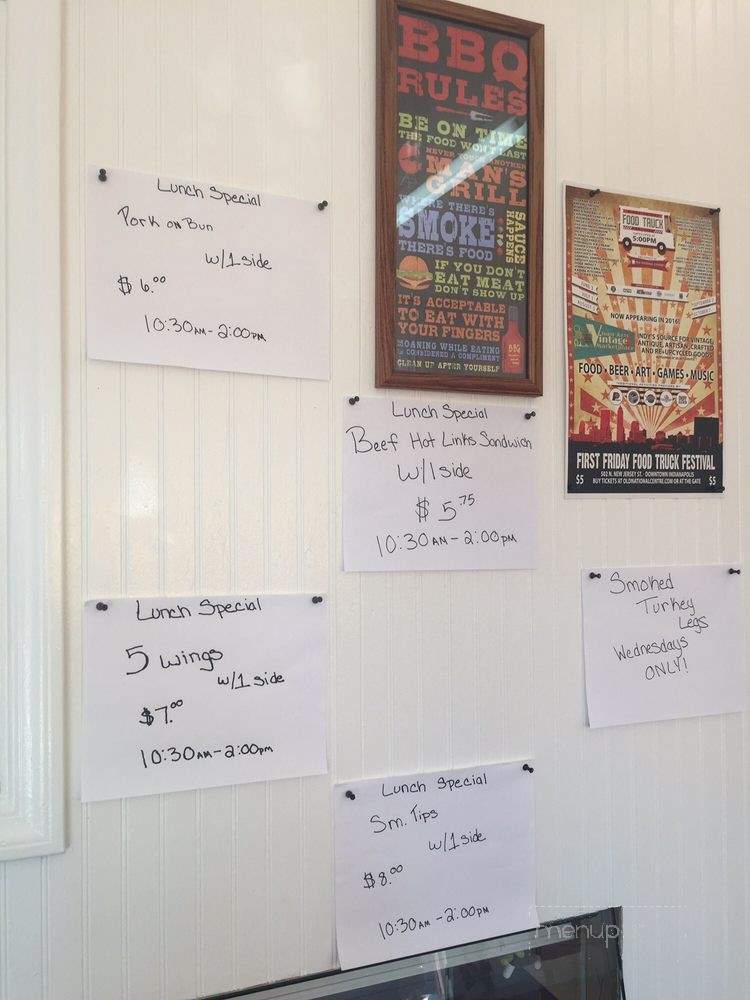 BBQ
RULES
BE ON TIME
THE FOOD WON'T LAST
NEVER ANOTHER
MAN'S
GRILL
WHERE THERE'S
SMOKE
THERE'S FOOD
SAUCE
HAPPENS
IF YOU DON'T
EAT MEAT
DON'T SHOW UP
IT'S ACCEPTABLE
TO EAT WITH
YOUR FINGERS
MOANING WHILE EATING
IS CONSIDERED A COMPLIMENT
CLEAN UP AFTER YOURSELF
BBQ
Lunch Special
Pork on Bun
w/1 side
$6.00
10:30AM-2:00PM
FOOD TRUCK
5:00PM
NOW APPEARING IN 2016!
Vintage
INDY'S SOURCE FOR VINTAGE,
ANTIQUE, ARTISAN, CRAFTED
AND RE•UPCYCLED GOODS
FOOD • BEER • ART • GAMES • MUSIC
FIRST FRIDAY FOOD TRUCK FESTIVAL
$5
502 N. NEW JERSEY ST. - DOWNTOWN INDIANAPOLIS
BUY TICKETS AT OLDNATIONALCENTRE.COM OR AT THE GATE
$5
Lunch Special
Beef Hot Links Sandwich
w/1 side
$5.75
10:30AM-2:00PM
Smoked
Turkey
Legs
Wednesdays
ONLY!
Lunch Special
5 wings
w/1 side
$7.00
10:30AM-2:00pm
Lunch Special
Sm. Tips
w/1 side
$8.00
10:30AM-2:00PM
menup